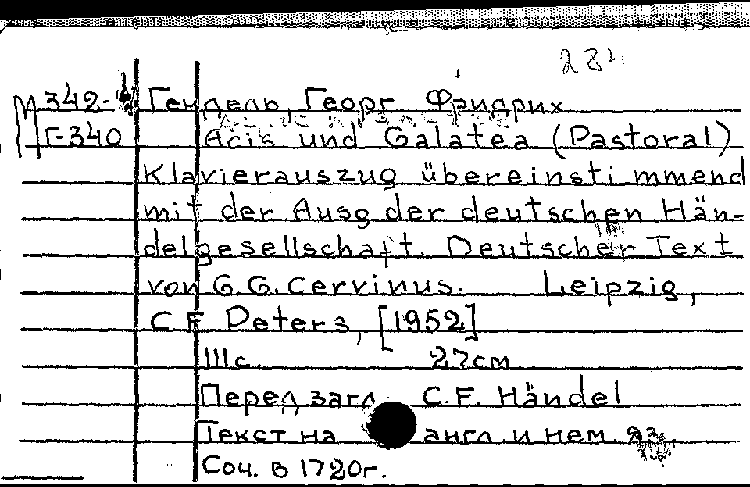 М 342-4 Гендель, Георг Фридрих
Г-340 Acis und Galatea (Pastoral)
Klavierauszug übereinstimmend
mit der Ausg der deutschen Hän-
delgesellschaft. Deutscher Text
von G.G. Cervinus. Leipzig,
C F Peters, [1952]
111 с 27 см
Перед загл C.F. Händel
Текст на англ. и нем яз.
Соч. в 1720 г.